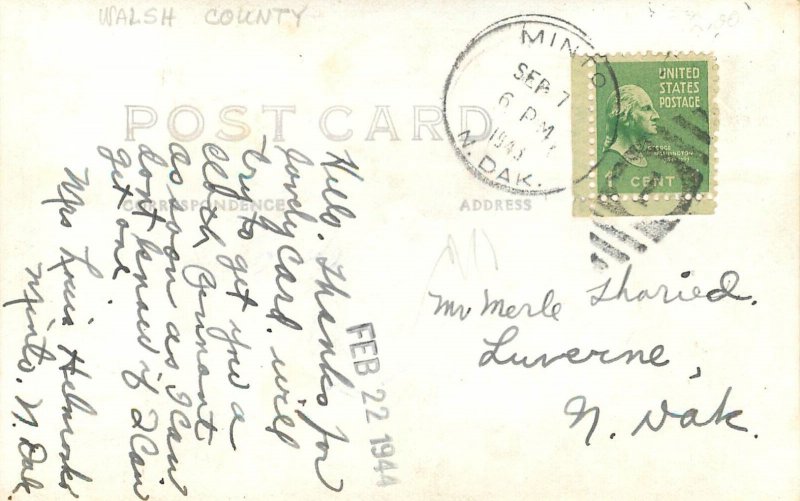 WALSH COUNTY
MINTO
SEP 7
6 PM
1943
N. DAK.
UNITED
STATES
POSTAGE
GEORGE
WASHINGTON
1 CENT
POST CARD
CORRESPONDENCE
ADDRESS
Hello. Thanks for
lovely Card. will
try to get you a
cloth pennant
as soon as I Can
don't know if I Can
get one.
Mrs Louis
Minto. N. Dak
FEB 22 1944
Mr Merle
Luverne,
N. Dak.